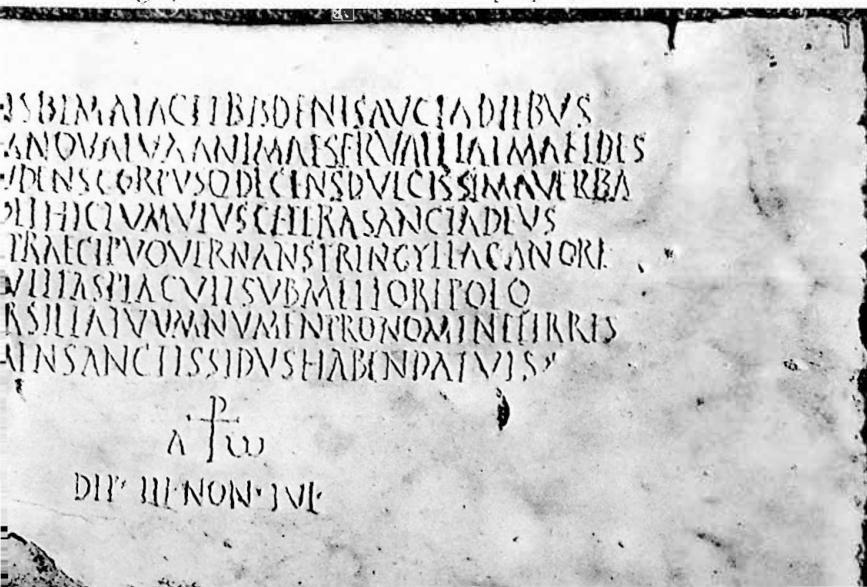 ISBIMATACETBISDENISAVCTADIEBVS
ANOVALVXANIMAESERVATETALMAFIDES
VDENSCORPVSQDECENSDVLCISSIMAVERBA
OLITHICTVMVLVSCETERASANCTADEVS
PRAECIPVOVERNANSFRINGYLLACANORE
VILITASPLACVITSVBMELIOREPOLO
RSILLATVVMNVMENPRONOMINETERRIS
MENSANCTISSIDVSHABENDATVIS
A ⳨ ω
DEP· III·NON·IVL·